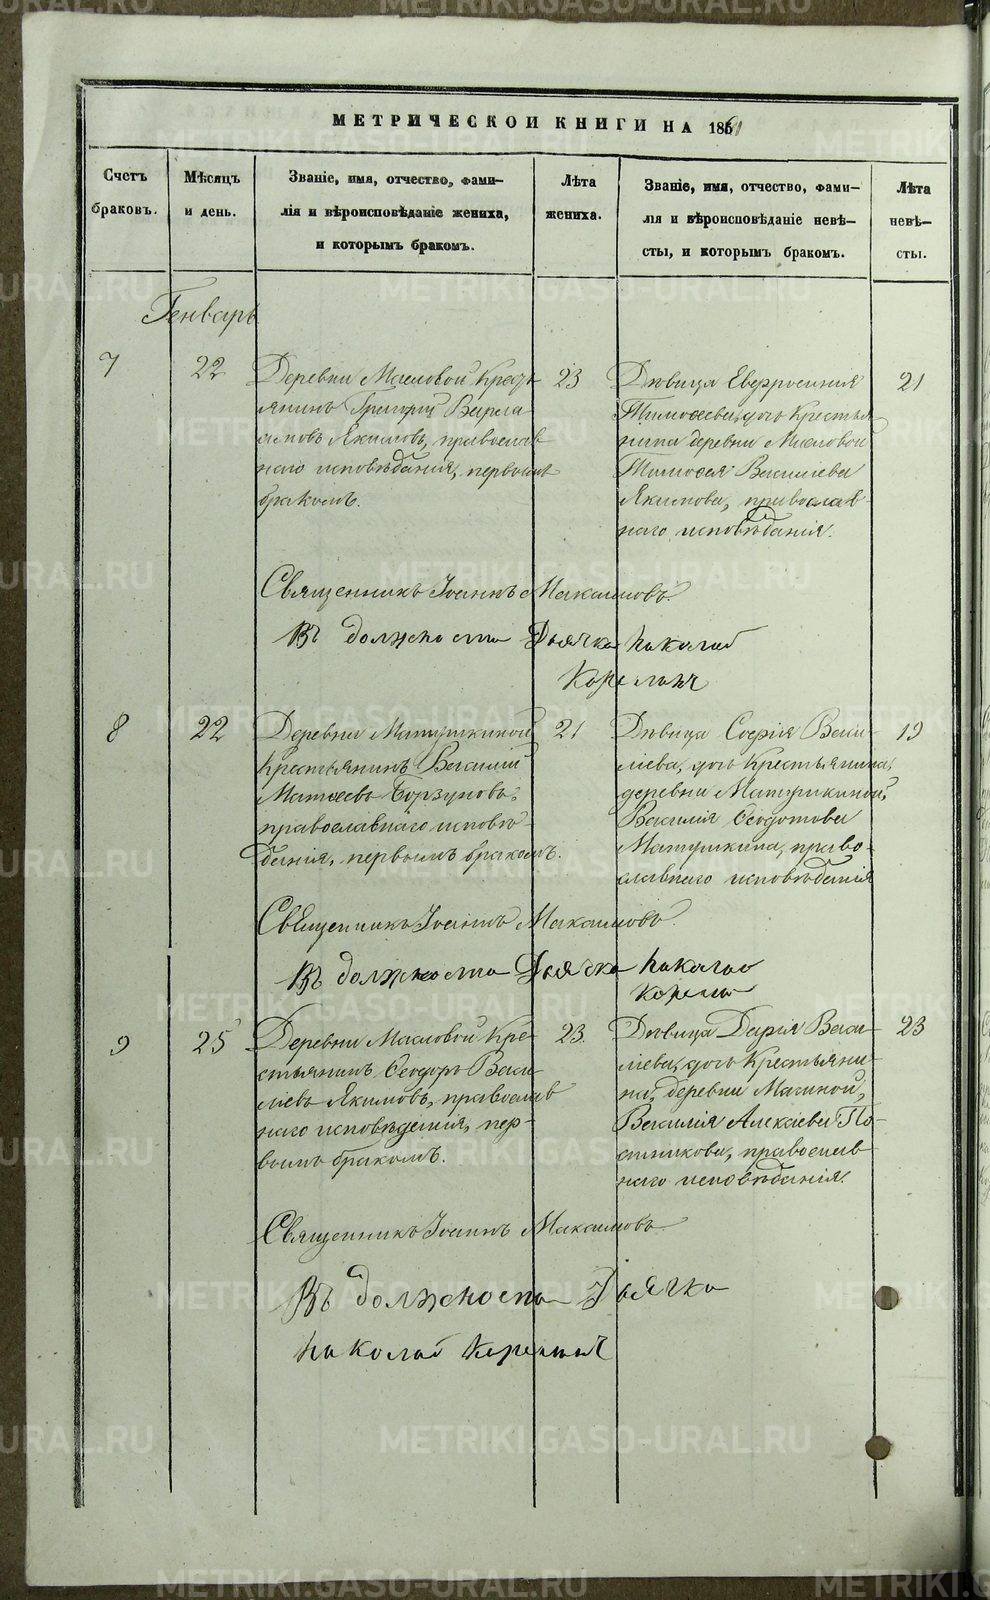 МЕТРИЧЕСКОЙ КНИГИ НА 1861
Счетъ браковъ.
Мѣсяцъ и день.
Званіе, имя, отчество, фами-
лія и вѣроисповѣданіе жениха,
и которымъ бракомъ.
Лѣта жениха.
Званіе, имя, отчество, фами-
лія и вѣроисповѣданіе невѣ-
сты, и которымъ бракомъ.
Лѣта невѣ-
сты.
Генварь
7
22
Деревни Масловой Кресть-
янинъ Григорій Варла-
амовъ Якимовъ, православ-
наго исповѣданія, первымъ
бракомъ.
23
Дѣвица Евфросинія
Тимоѳеева, дочь Крестья-
нина деревни Масловой
Тимоѳея Васильева
Якимова, православ-
наго исповѣданія.
21
Священникъ Іоаннъ Максимовъ.
Въ должности Дьячка Николай
8
22
Деревни Матушкиной
Крестьянинъ Василий
Матѳеевъ Борзуновъ,
православнаго исповѣ-
данія, первымъ бракомъ.
21
Дѣвица Софія Васи-
лiева, дочь Крестьянина,
деревни Матушкиной,
Василія Ѳеодотова
Матушкина, право-
славнаго исповѣданія
19
Священникъ Іоаннъ Максимовъ.
Въ должности Дьячка Николай
9
25
Деревни Масловой Кре-
стьянинъ Ѳеодоръ Васи-
лiевъ Якимовъ, православ-
наго исповѣданія, пер-
вымъ бракомъ.
23.
Дѣвица Дарія Васи-
лiева, дочь Крестьяни-
на, деревни
Василія Алексѣева По-
стникова, православ-
наго исповѣданія.
23
Священникъ Іоаннъ Максимовъ
Въ должности Дьячка
Николай
METRIKI.GASO-URAL.RU